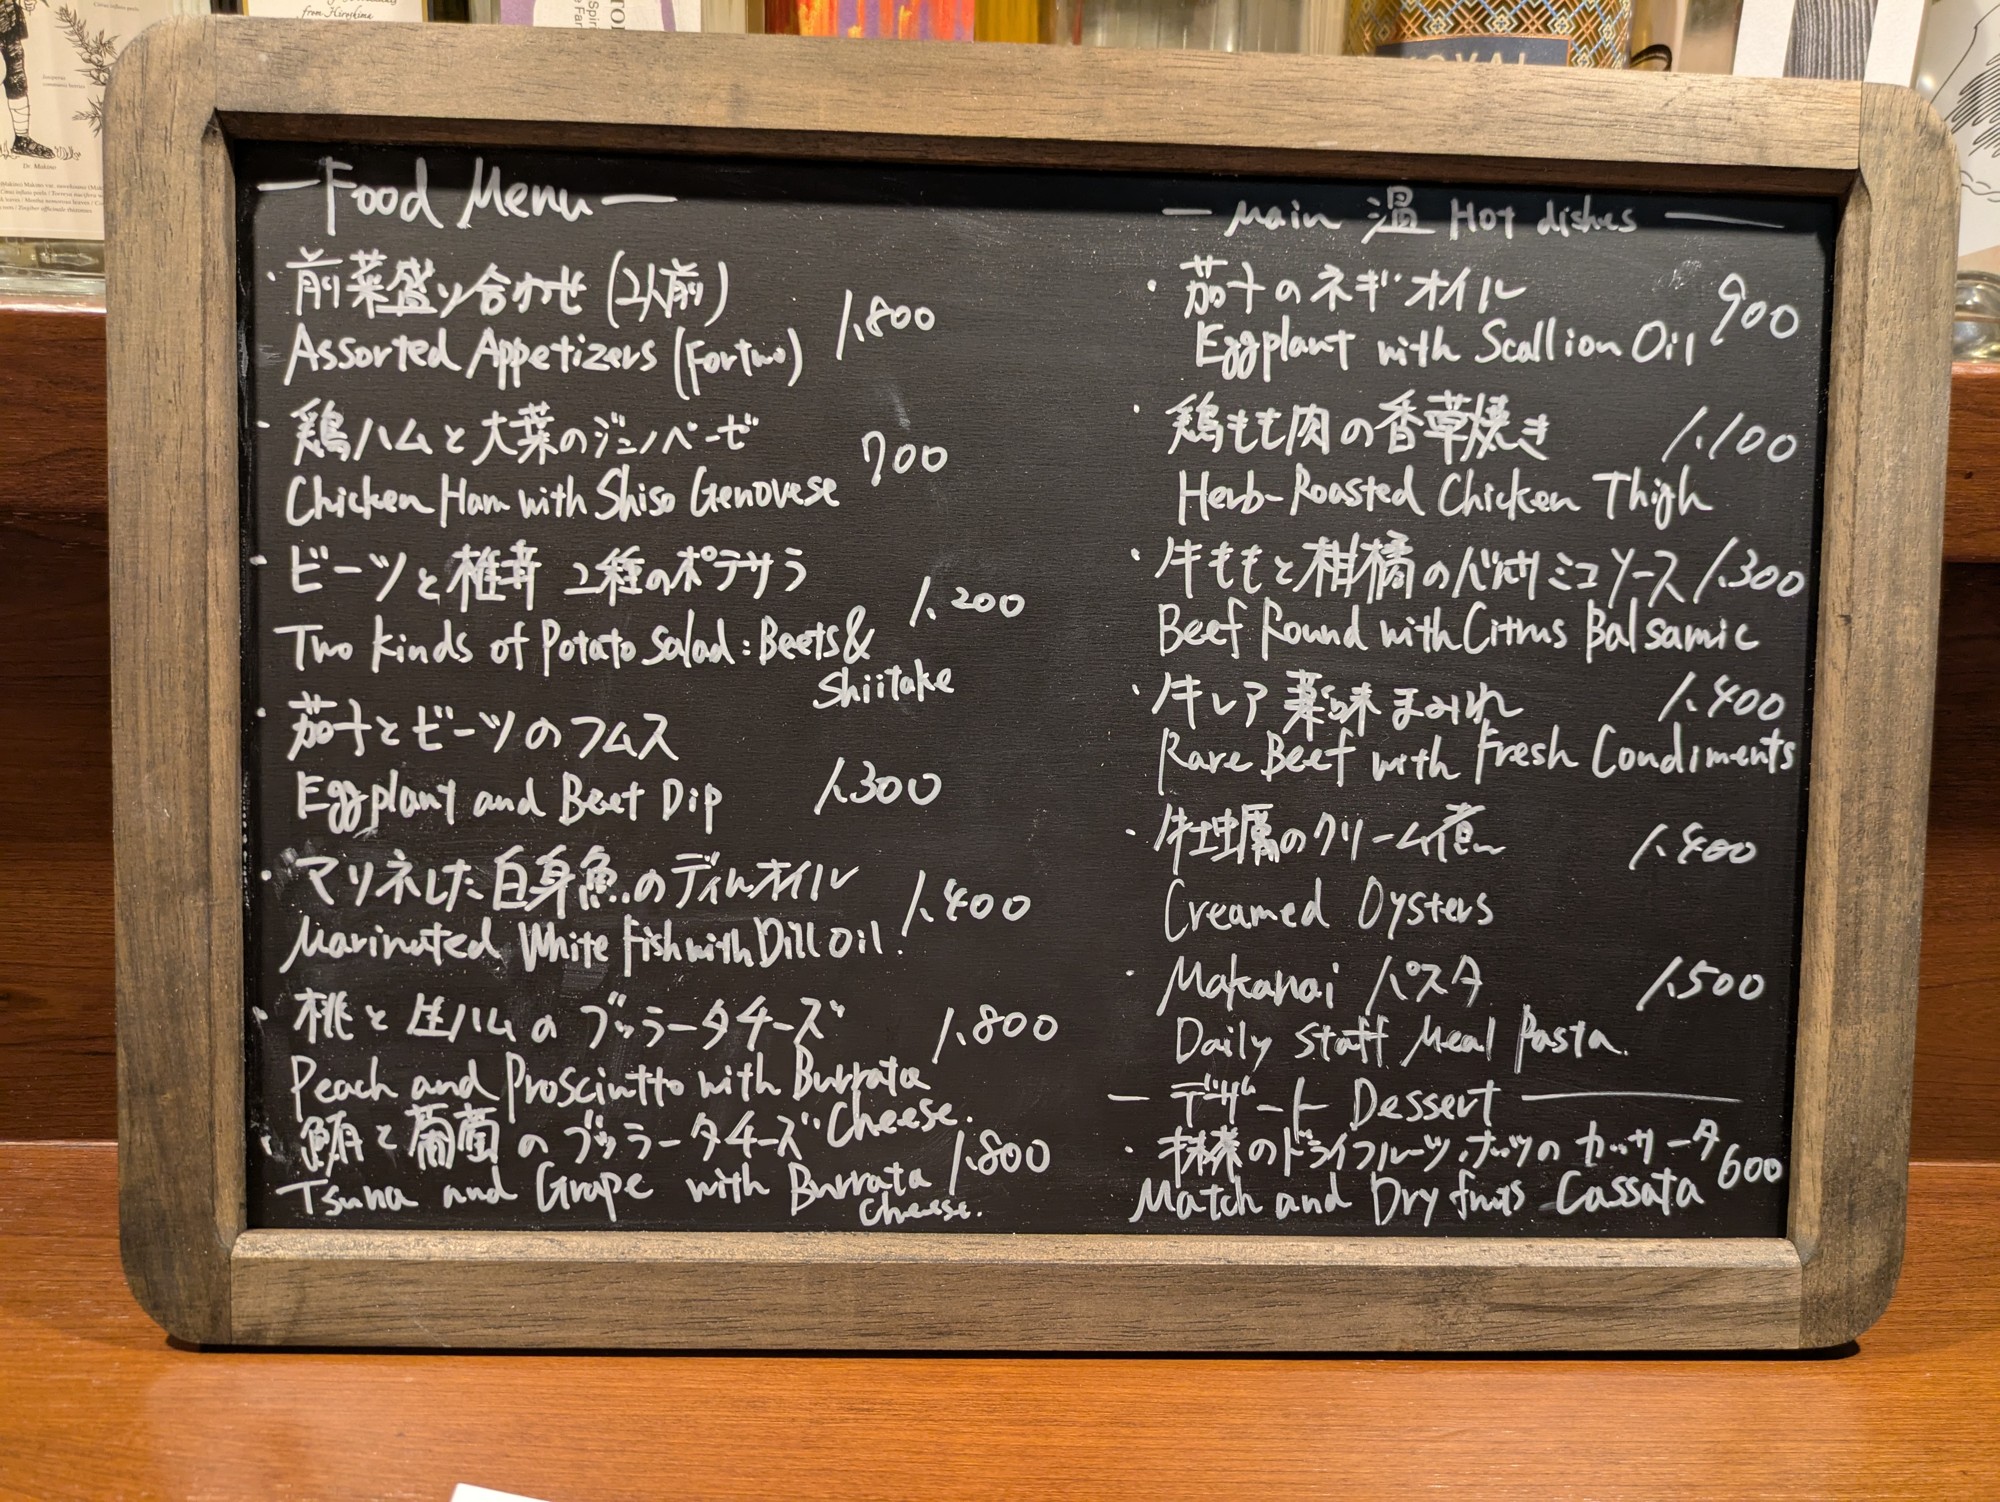 from Hiroshima
Dr. Makino
ROYAL
— Food Menu —
・前菜盛り合わせ (2人前)
1,800
Assorted Appetizers (For two)
・鶏ハムと大葉のジェノベーゼ
700
Chicken Ham with Shiso Genovese
・ビーツと椎茸 2種のポテサラ
1,200
Two kinds of Potato Salad : Beets &
Shiitake
・茄子とビーツのフムス
Eggplant and Beet Dip
1,300
・マリネした白身魚のディルオイル
1,400
Marinated White Fish with Dill Oil.
・桃と生ハムのブッラータチーズ
1,800
Peach and Prosciutto with Burrata
Cheese.
・鮪と葡萄のブッラータチーズ
1,800
Tsuna and Grape with Burrata
Cheese.
— Main 温 Hot dishes —
・茄子のネギオイル
900
Eggplant with Scallion Oil
・鶏もも肉の香草焼き
1,100
Herb-Roasted Chicken Thigh
・牛ももと柑橘のバルサミコソース 1,300
Beef Round with Citrus Balsamic
・牛レア 薬味まみれ
1,400
Rare Beef with Fresh Condiments
・牡蠣のクリーム煮
1,400
Creamed Oysters
・Makanai パスタ
1,500
Daily Staff Meal Pasta.
— デザート Dessert —
・抹茶のドライフルーツ・ナッツのカッサータ
600
Match and Dry fruits Cassata